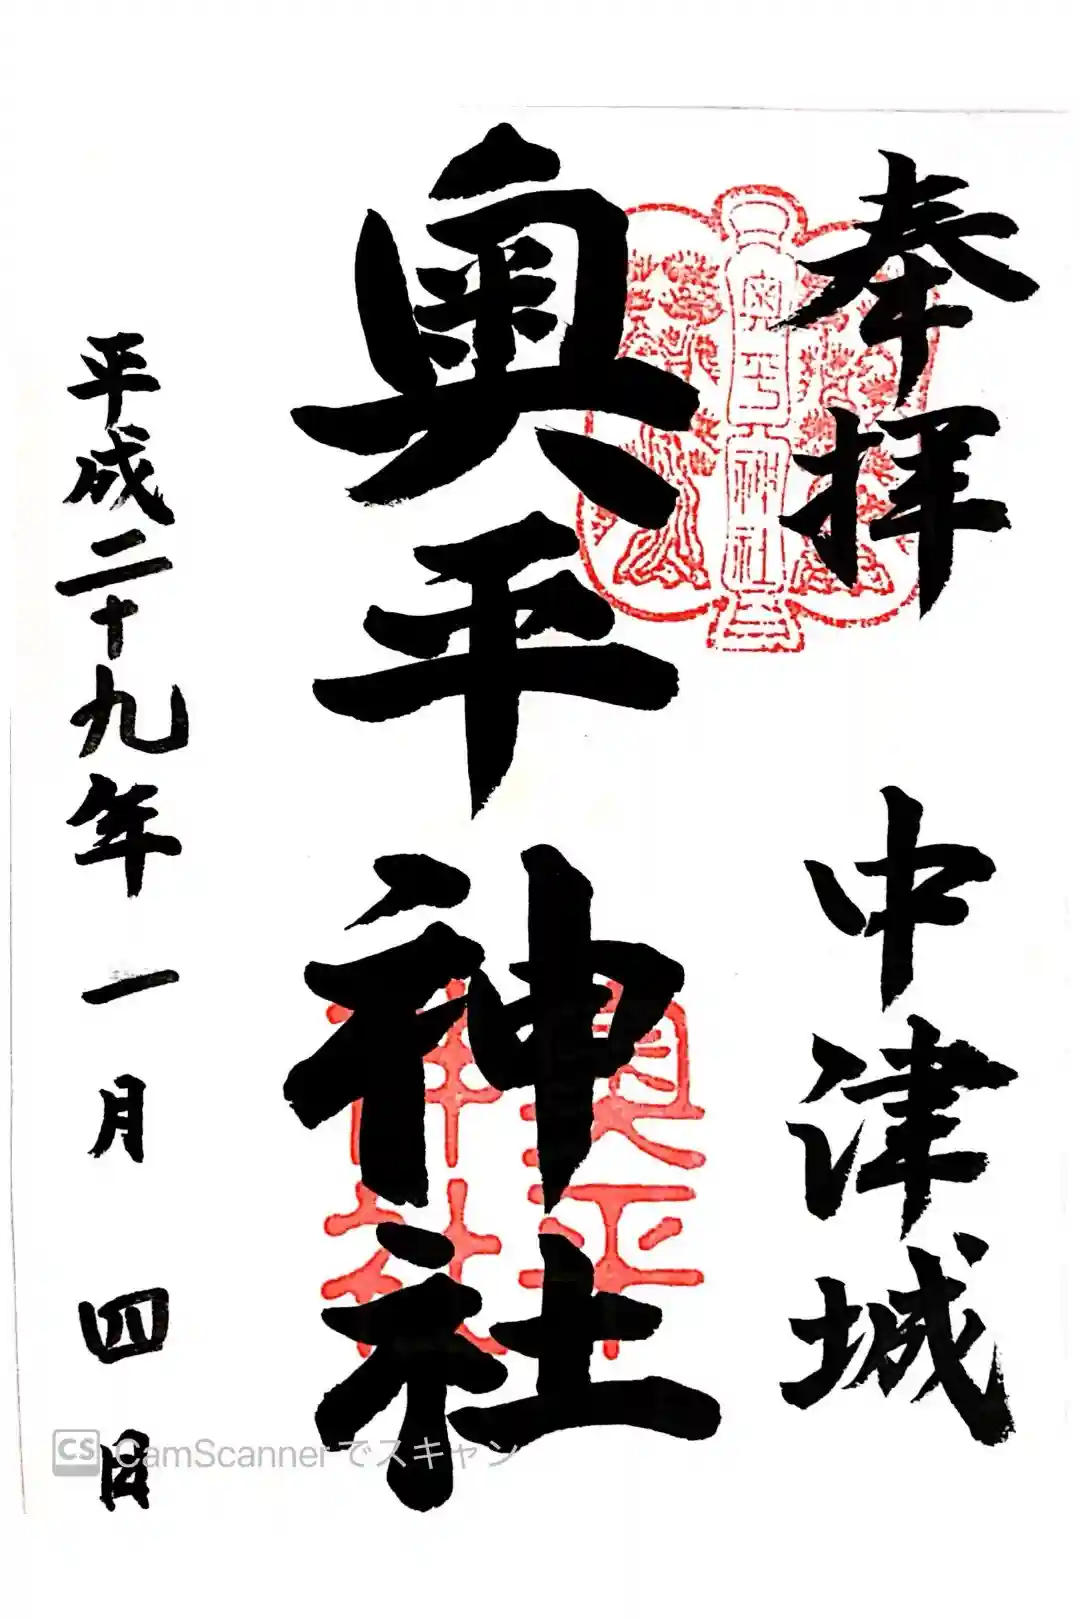 奉拝
中津城
奥平神社
平成二十九年一月四日
奥平神社
奥平
神社
CS CamScannerでスキャン